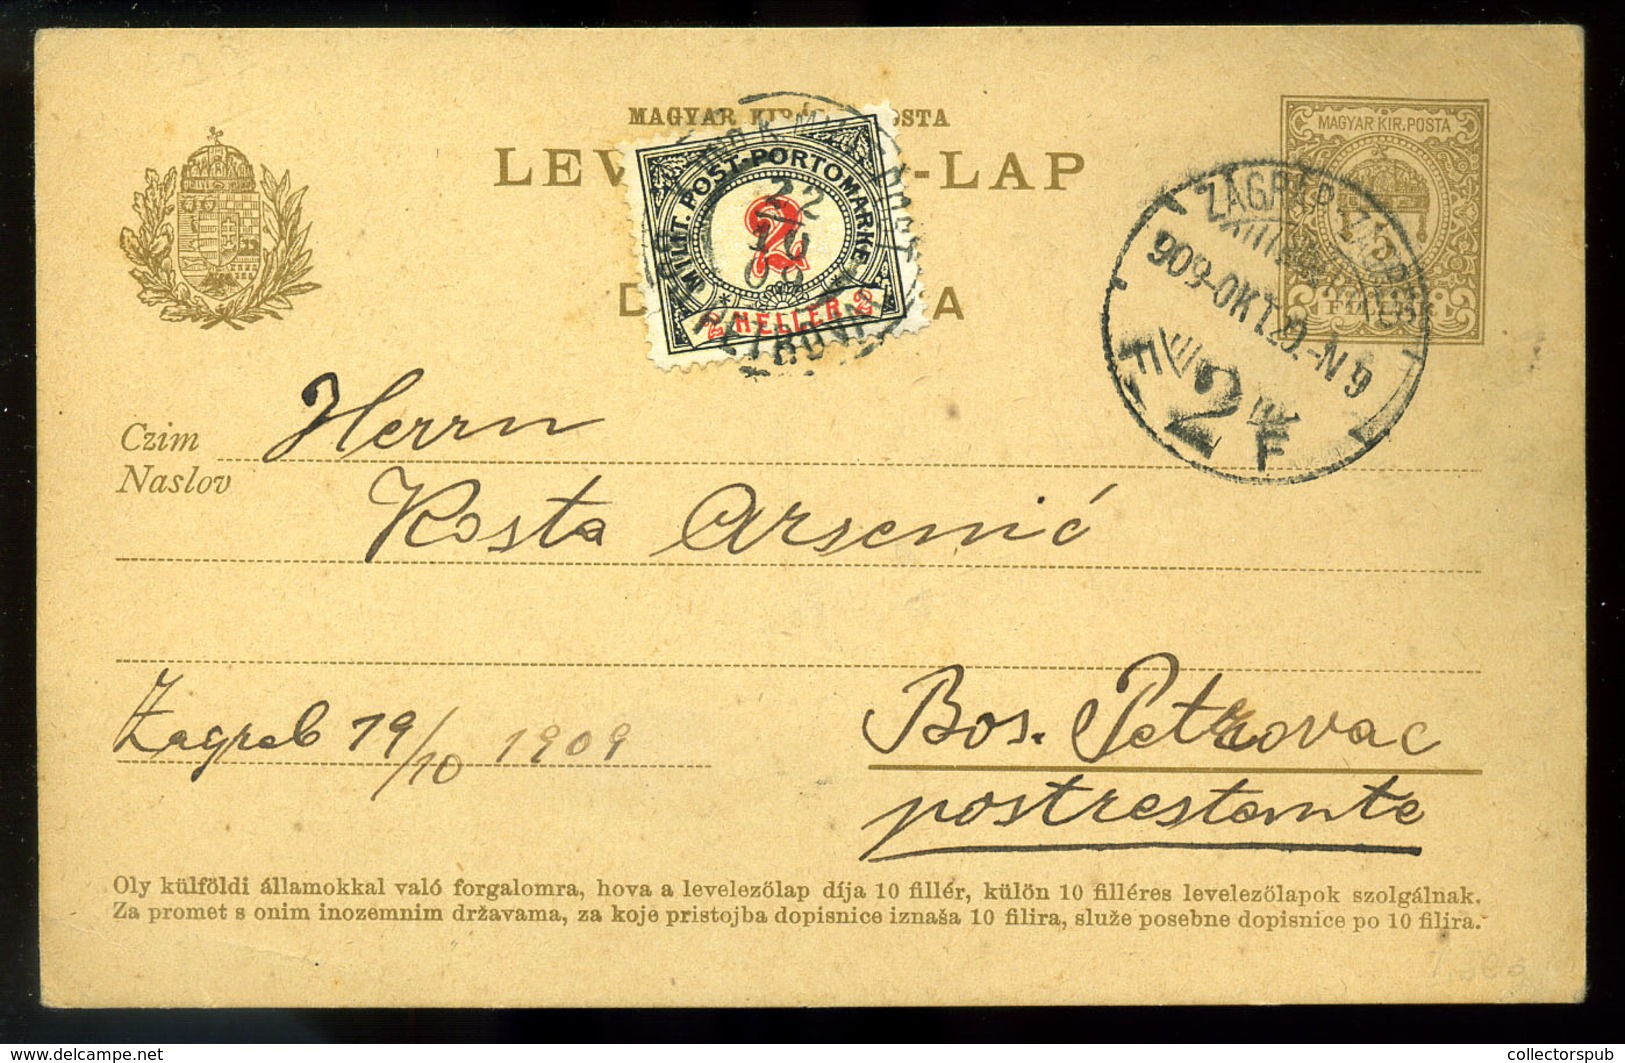 MAGYAR KIR. POSTA
LEV -LAP
D A
MAGYAR KIR. POSTA
FILLÉR
MILIT. POST-PORTOMARKE
2
2 HELLER 2
22
10
09
PETROVAC
ZÁGRÁB ZAGREB
909-OKT.20.-N9
2
F F
Czim
Naslov
Herrn
Kosta Arsenić
Zagreb 19/10 1909
Bos. Petrovac
postrestante
Oly külföldi államokkal való forgalomra, hova a levelezőlap díja 10 fillér, külön 10 filléres levelezőlapok szolgálnak.
Za promet s onim inozemnim državama, za koje pristojba dopisnice iznaša 10 filira, služe posebne dopisnice po 10 filira.
collectorspub